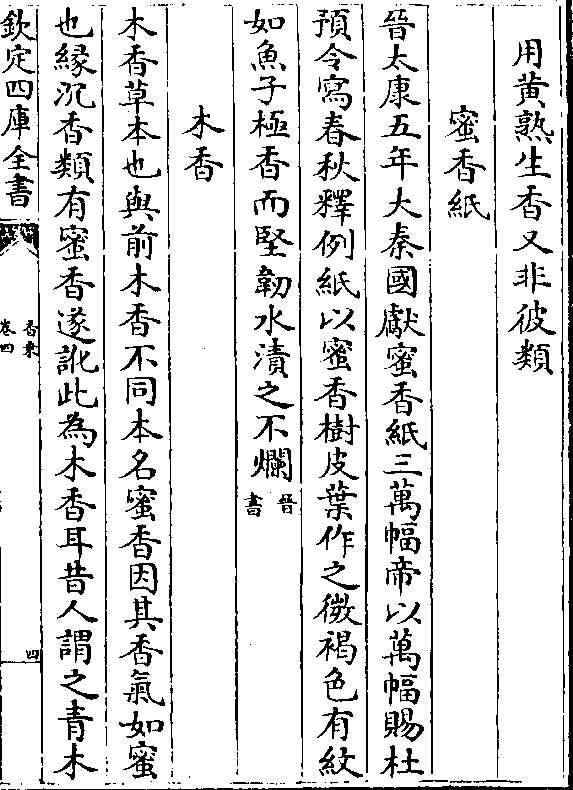 用黄熟生香又非彼類
蜜香紙
晉太康五年大秦國獻蜜香紙三萬幅帝以萬幅賜杜
預令寫春秋釋例紙以蜜香樹皮葉作之微褐色有紋
如魚子極香而堅韌水漬之不爛晉書
木香
木香草本也與前木香不同本名蜜香因其香氣如蜜
也縁沉香類有蜜香遂訛此為木香耳昔人謂之青木
欽定四庫全書
香乗
卷四
四